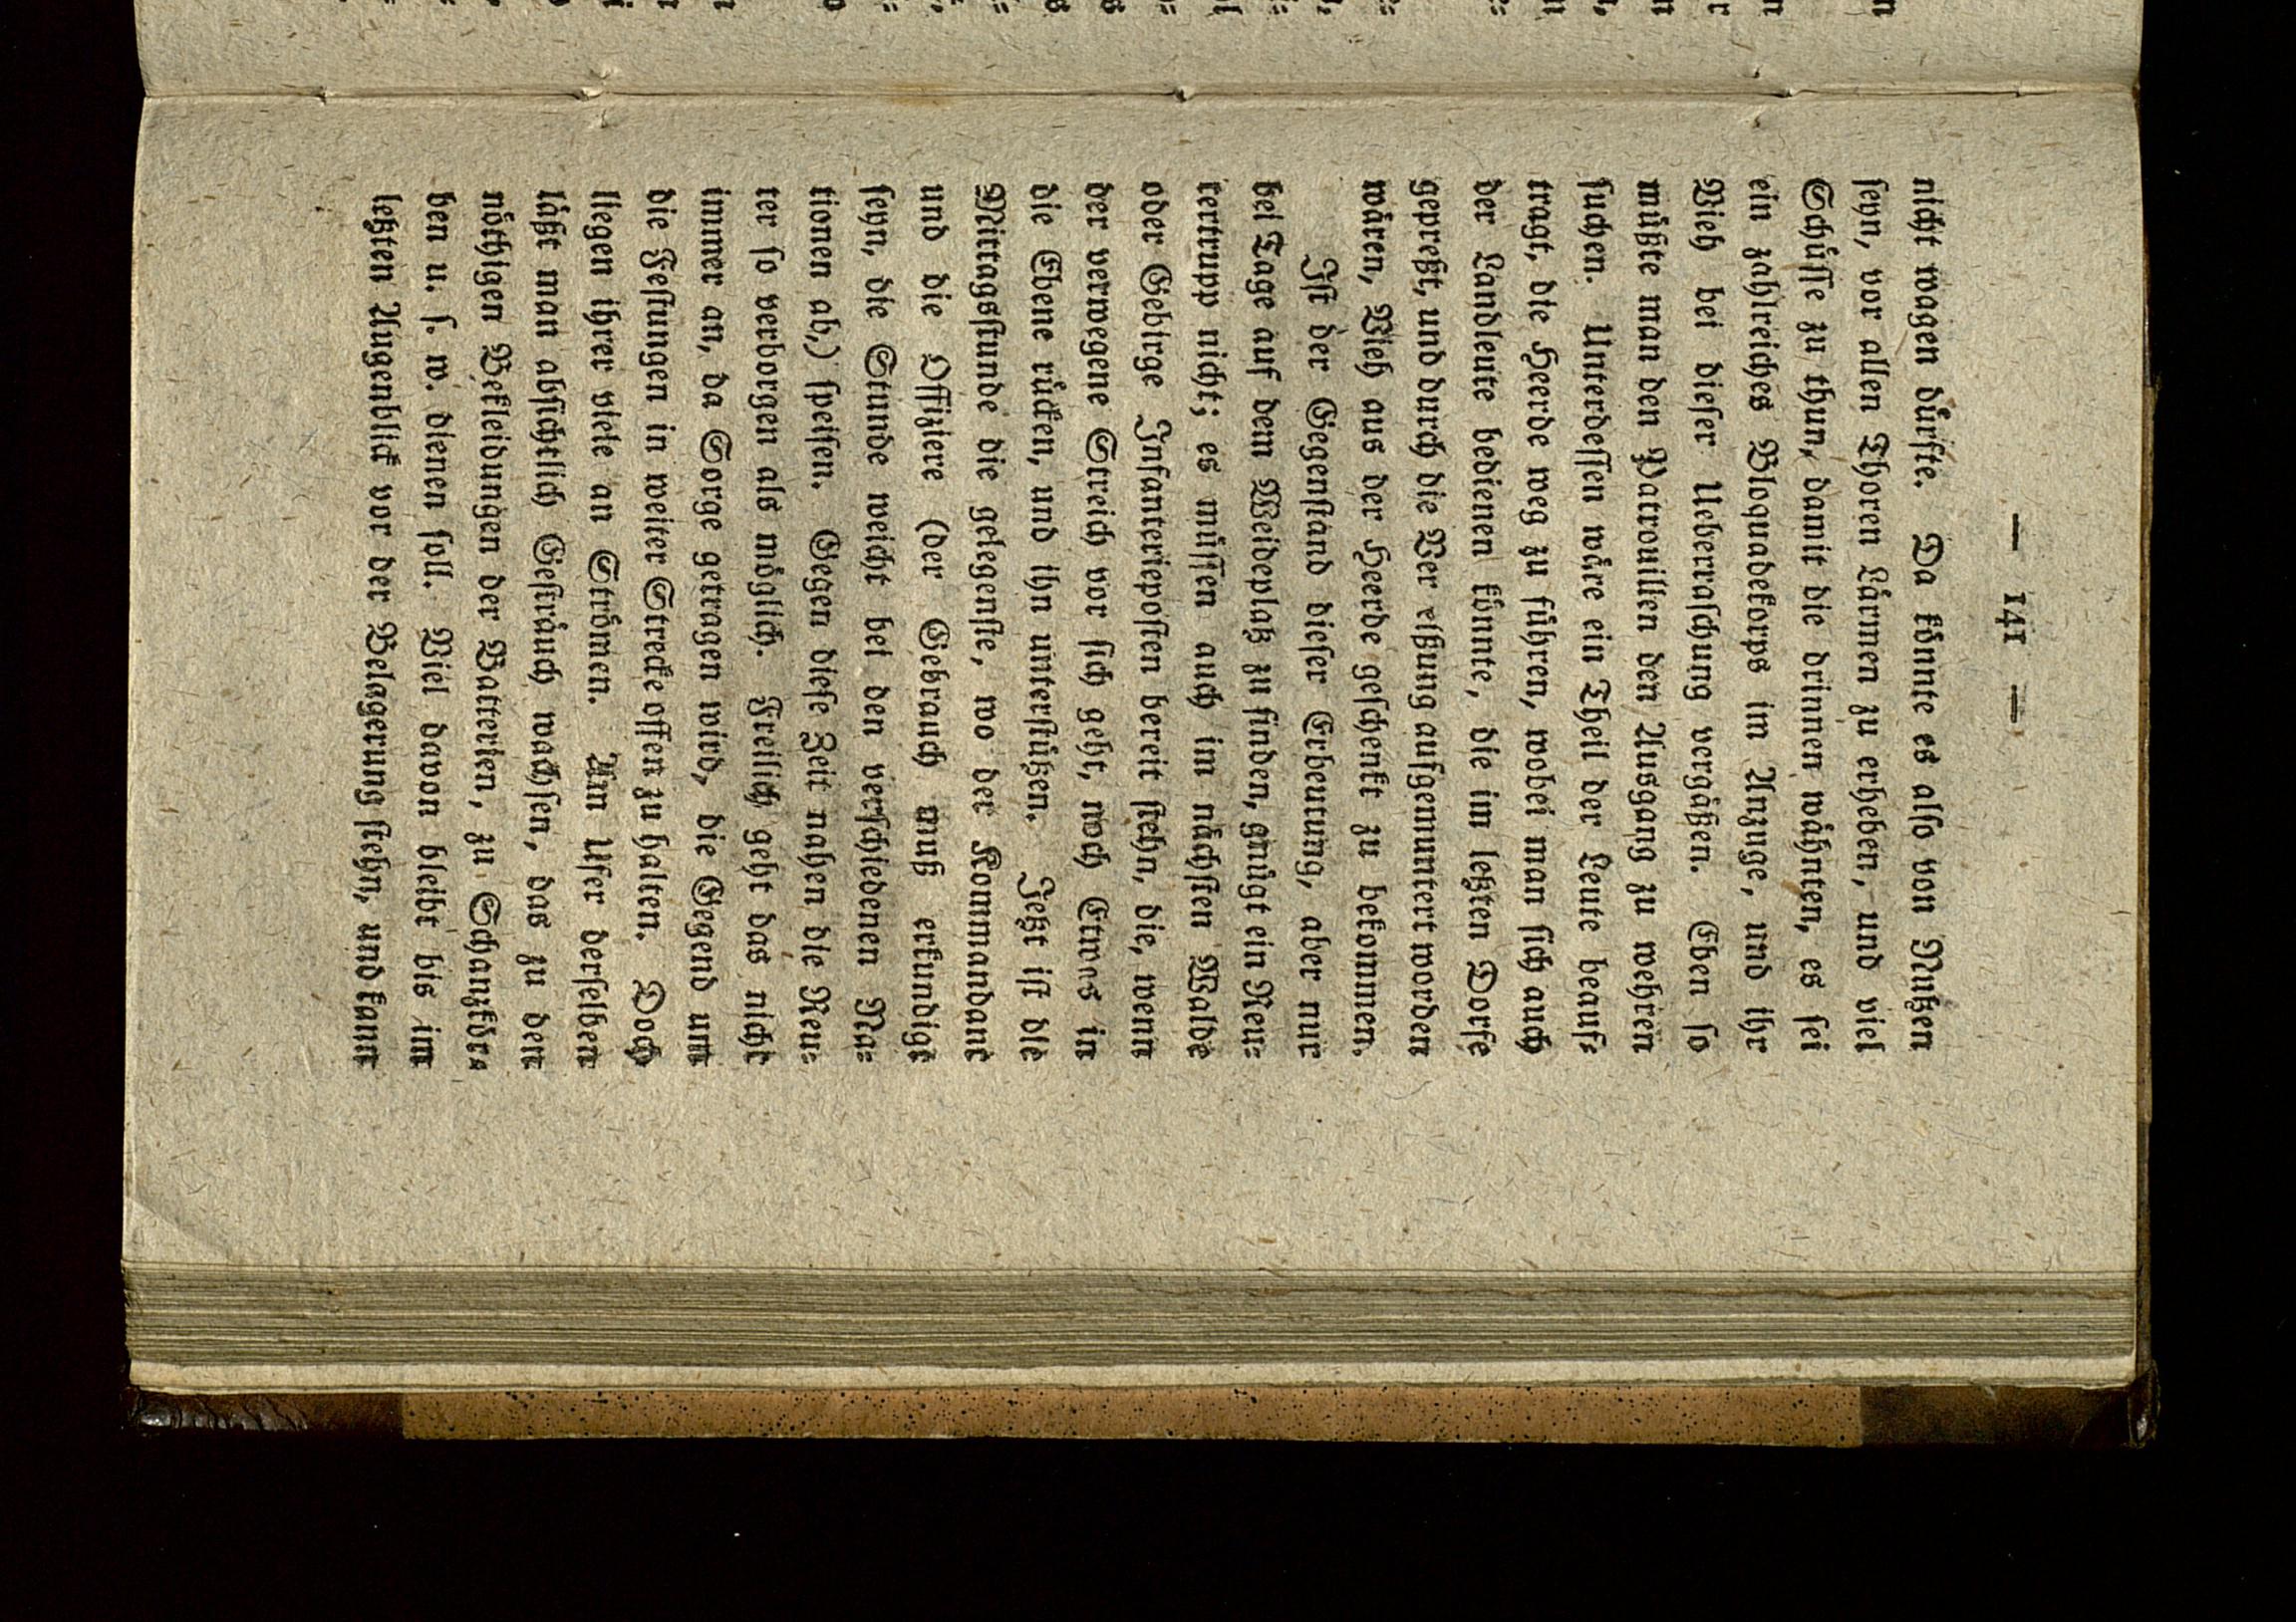 — 141 —
nicht wagen dürfte. Da könnte es also von Nutzen
seyn, vor allen Thoren Lärmen zu erheben, und viel
Schüsse zu thun, damit die drinnen wähnten, es sei
ein zahlreiches Bloquadekorps im Anzuge, und ihr
Vieh bei dieser Ueberraschung vergäßen. Eben so
müßte man den Patrouillen den Ausgang zu wehren
suchen. Unterdessen wäre ein Theil der Leute beauf-
tragt, die Heerde weg zu führen, wobei man sich auch
der Landleute bedienen könnte, die im letzten Dorfe
gepreßt, und durch die Ver eißung aufgemuntert worden
wären, Vieh aus der Heerde geschenkt zu bekommen.
Ist der Gegenstand dieser Erbeutung, aber nur
bei Tage auf dem Weideplatz zu finden, gnügt ein Reu-
tertrupp nicht; es müssen auch im nächsten Walde
oder Gebirge Infanterieposten bereit stehn, die, wenn
der verwegene Streich vor sich geht, noch Etwas in
die Ebene rücken, und ihn unterstützen. Jetzt ist die
Mittagsstunde die gelegenste, wo der Kommandant
und die Offiziere (der Gebrauch muß erkundigt
seyn, die Stunde weicht bei den verschiedenen Na-
tionen ab,) speisen. Gegen diese Zeit nahen die Reu-
ter so verborgen als möglich. Freilich geht das nicht
immer an, da Sorge getragen wird, die Gegend um
die Festungen in weiter Strecke offen zu halten. Doch
liegen ihrer viele an Strömen. Am Ufer derselben
läßt man absichtlich Gesträuch wachsen, das zu den
nöthigen Bekleidungen der Batterien, zu Schanzkör-
ben u. s. w. dienen soll. Viel davon bleibt bis im
letzten Augenblick vor der Belagerung stehn, und kann